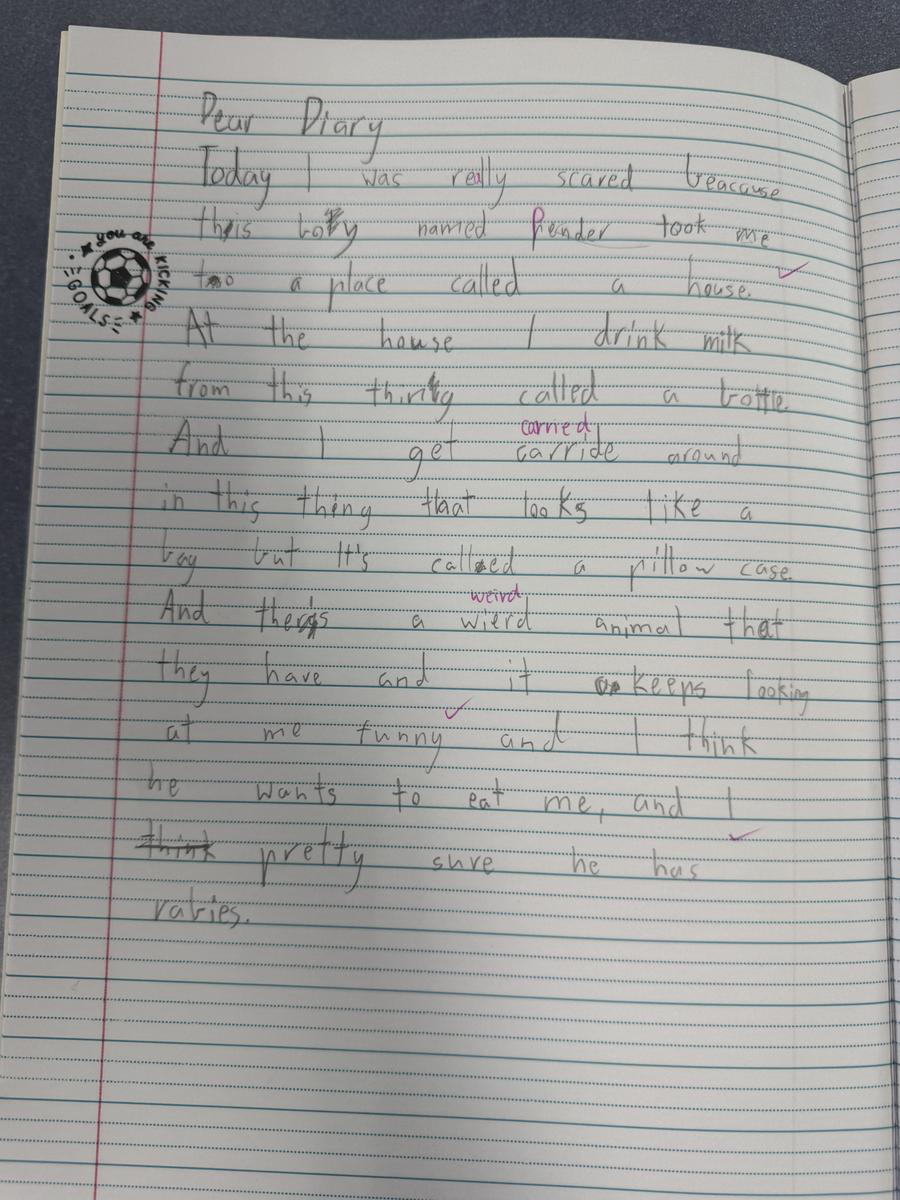 Dear Diary
Today I was really scared beacause
this boy named Pender took me
to a place called a house.
you are KICKING GOALS
At the house I drink milk
from this thing called a bottle.
carried
And I get carride around
in this thing that looks like a
bag but It's called a pillow case.
weird
And there's a wierd animal that
they have and it keeps looking
at me funny and I think
he wants to eat me, and I
think pretty sure he has
rabies.